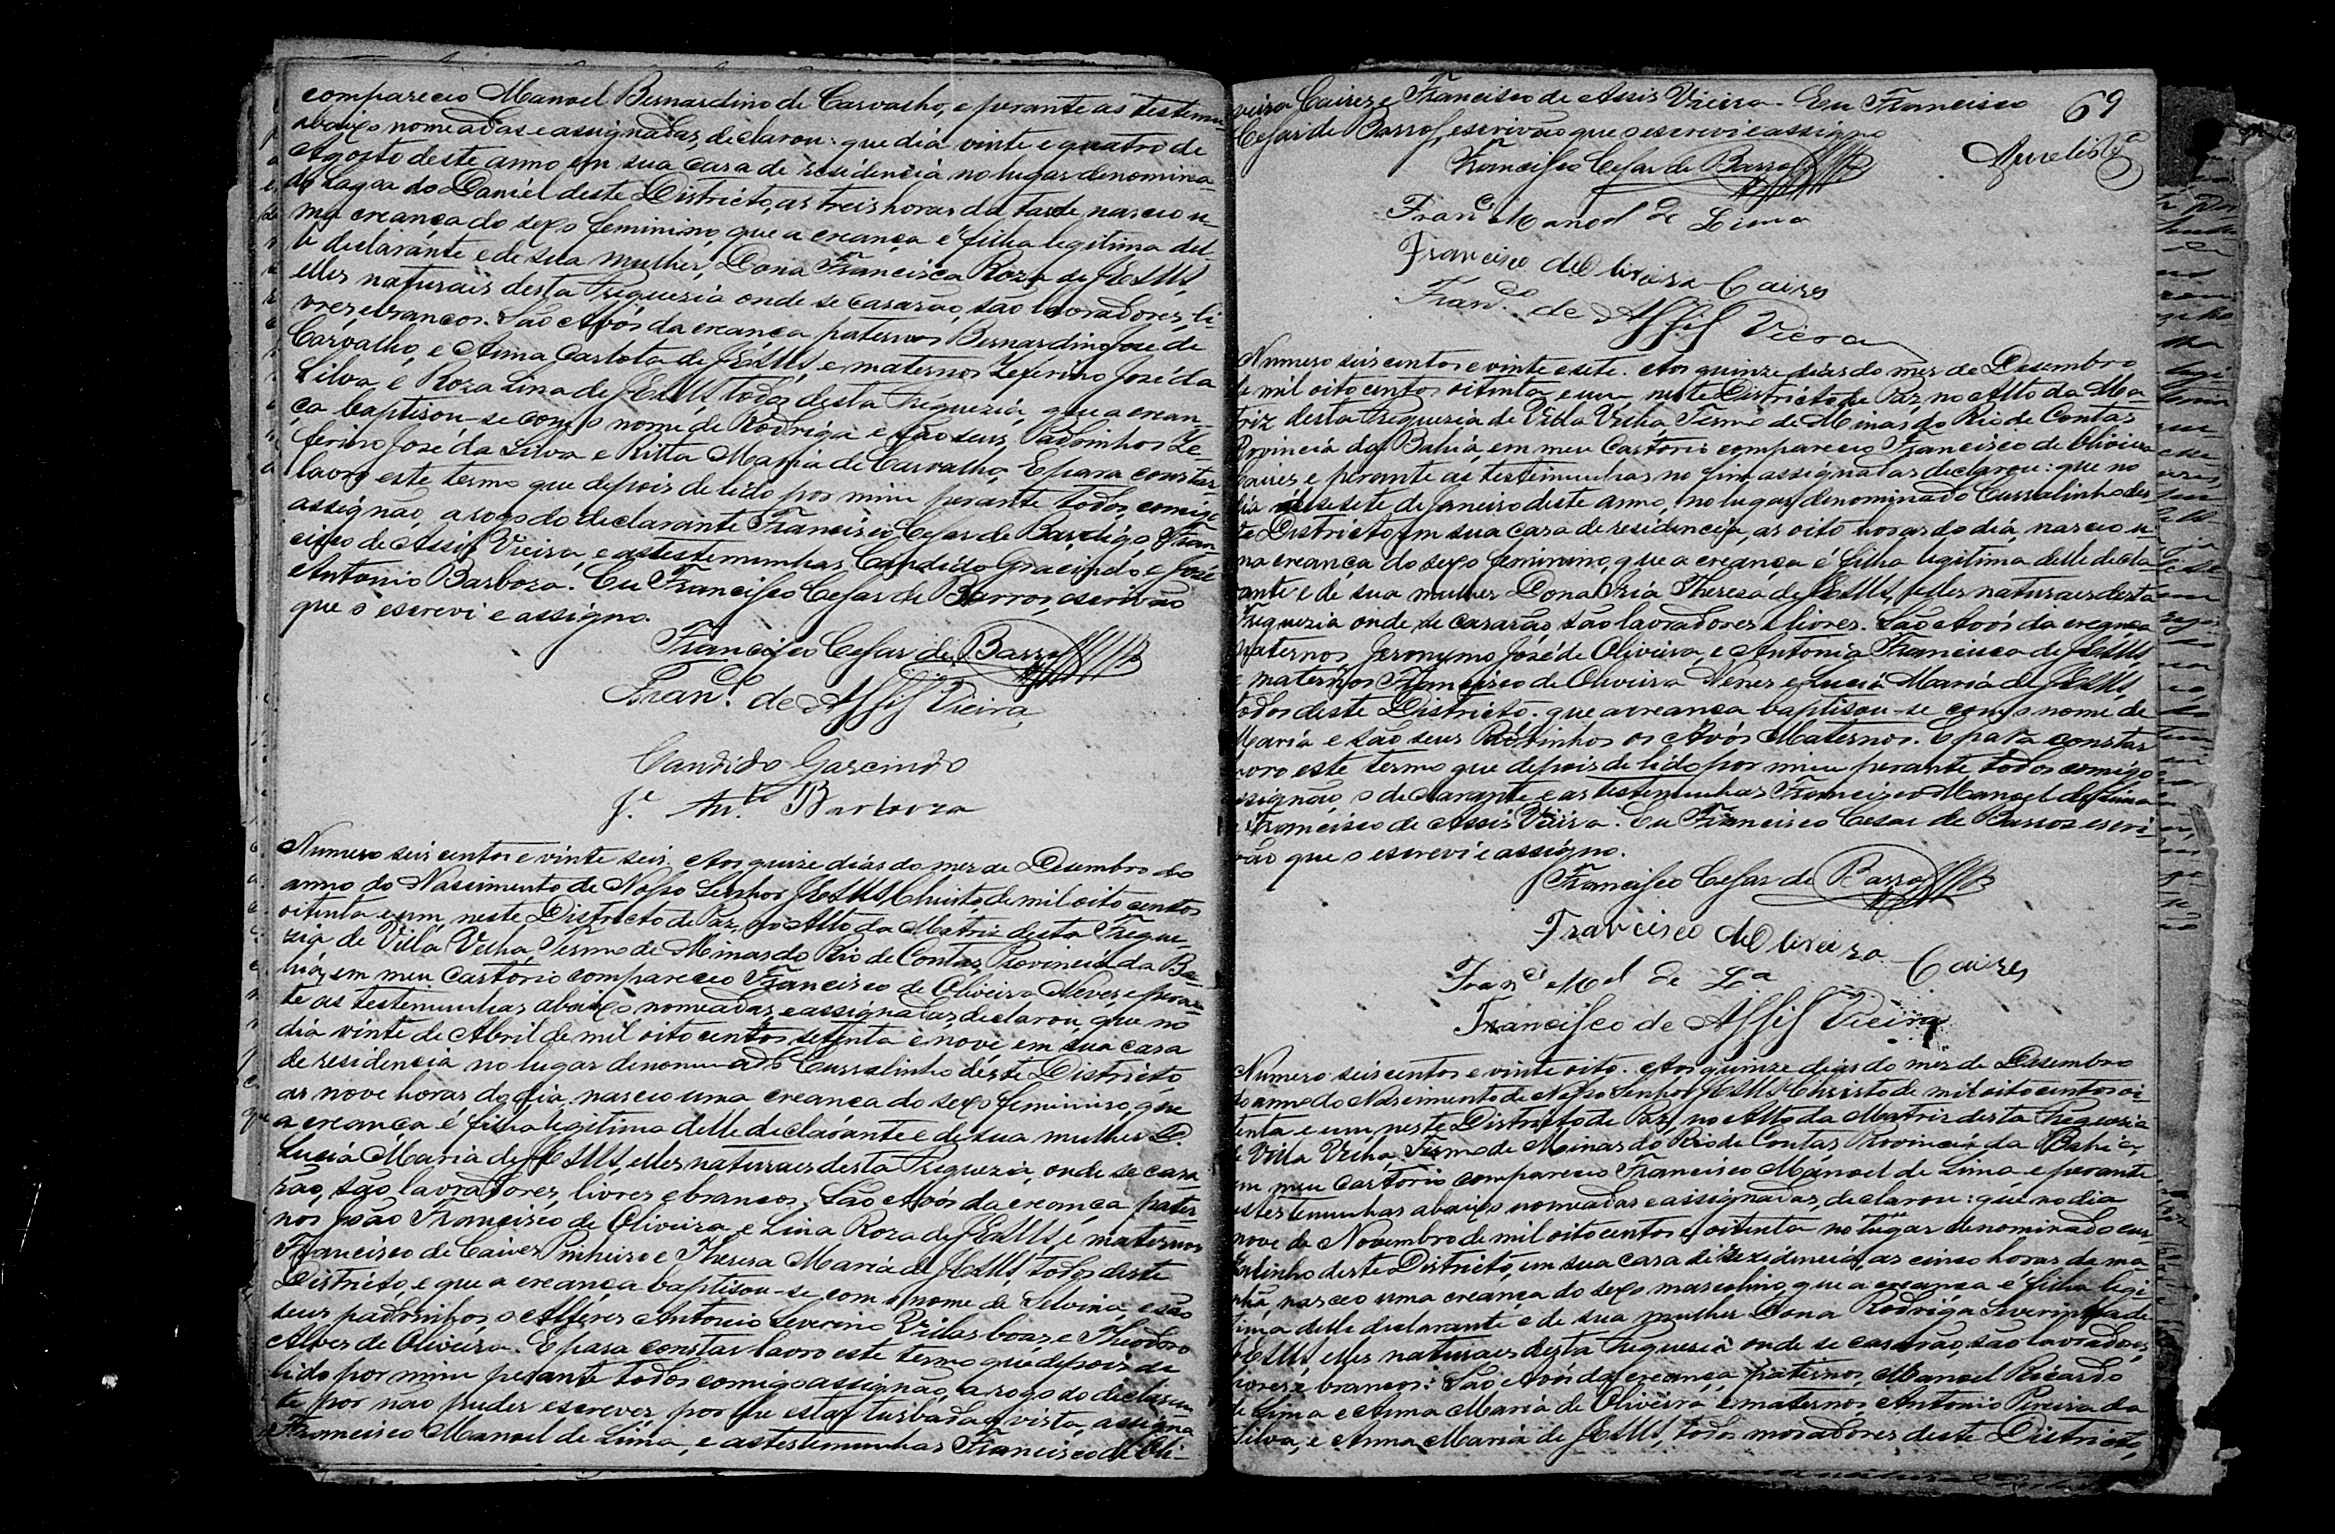 compareceo Manoel Bernardino de Carvalho, e perante as testemu-
abaixo nomeadas e assignadas, declarou: que dia vinte e quatro de
Agosto deste anno em sua casa de residencia no lugar denomina-
do Lagoa do Daniel deste Districto, as treis horas da tarde, nasceo u-
ma creança do sexo feminino, que a creança é filha legitima del-
le declarante e de sua mulher, Dona Francisca Roza de JESUS,
elles naturais desta Freguezia onde se casarão, são lavradores, li-
vres, e brancos. São Avós da creança paternos Bernardino José de
Carvalho, e Anna Carlota de JESUS, e maternos Zeferino José da
Silva, e Roza Lina de JESUS, todos desta Freguezia, que a crean-
ça baptisou-se com o nome de Rodriga e são seus Padrinhos Ze-
ferino José da Silva e Ritta Maria de Carvalho. E para constar
lavro este termo que depois de lido por mim perante todos comigo
assignão, a rogo do declarante Francisco Cesar de Bar, digo, Fran-
cisco de Assis Vieira, e as testemunhas Candido Gracindo, e José
Antonio Barboza. Eu Francisco Cesar de Barros, escrivão
que o escrevi e assigno.
Francisco Cesar de Barros
Franco. de Assis Vieira
Candido Garcindo
Je. Anto. Barboza
Numero seis centos e vinte seis. Aos quinze dias do mes de Desembro do
anno do Nascimento de Nosso Senhor JESUS Christo de mil oito centos
oitenta e um, neste Districto de Paz, no Alto da Matriz desta Fregue-
zia de Villa Velha, Termo de Minas do Rio de Contas, Provincia da Ba-
hia, em meu Cartorio compareceo Francisco de Oliveira Neves, e peran-
te as testemunhas abaixo nomeadas, e assignadas, declarou, que no
dia vinte de Abril de mil oito centos setenta e nove em sua casa
de residencia no lugar denominado Curralinho deste Districto
as nove horas do dia, nasceo uma creança do sexo feminino, que
a creança é filha legitima delle declarante e de sua mulher D.
Lucia Maria de JESUS, elles naturaes desta Freguezia, onde se casa
rão, são lavradores, livres, e brancos. São Avós da creança pater-
nos João Francisco de Oliveira e Lina Roza de JESUS, e maternos
Francisco de Caires Pinheiro e Theresa Maria de JESUS, todos deste
Districto, e que a creança baptisou-se com o nome de Selvina, e são
seus padrinhos o Alferes Antonio Severino Villas boas, e Theodoro
Alves de Oliveira. E para constar lavro este termo que depois de
lido por mim perante todos comigo assignão, a rogo do declaran
te por não puder escrever, por que estar turbada a vista, assigna
Francisco Manoel de Lima, e as testemunhas Francisco de Oli-
veira Caires, e Francisco de Assis Vieira. Eu Francisco
Cesar de Barros, escrivão que o escrevi e assigno
69
Francisco Cesar de Barros
Franco. Manoel de Lima
Francisco de Oliveira Caires
Franco. de Assis Vieira
Numero seis centos e vinte e sete. Aos quinze dias do mes de Desembro
de mil oito centos oitenta e um, neste Districto de Paz, no Alto da Ma
triz desta Freguezia de Villa Velha Termo de Minas do Rio de Contas
Provincia da Bahia, em meu Cartorio compareceo Francisco de Oliveira
Caires e perante as testemunhas no fim assignadas declarou: que no
dia desesete de Janeiro deste anno, no lugar denominado Curralinho des
te Districto em sua casa de residencia, as oito horas do dia, nasceo u-
ma creança do sexo feminino, que a creança é filha legitima delle decla
rante e de sua mulher Dona Theresa de JESUS, elles naturaes desta
Freguezia onde se casarão são lavradores e livres. São Avós da creança
Paternos Jeronymo José de Oliveira, e Antonia Francisca de JESUS,
e maternos Francisco de Oliveira Neves e Lucia Maria de JESUS,
todos deste Districto. que a creança baptisou-se com o nome de
Maria e são seus Padrinhos os Avós Maternos. E para constar
lavro este termo que depois de lido por mim perante todos comigo
assignão o declarante e as testemunhas Francisco Manoel de Lima
e Francisco de Assis Vieira. Eu Francisco Cesar de Barros escri
vão que o escrevi e assigno.
Francisco Cesar de Barros
Francisco de Oliveira Caires
Franco. Mel de La.
Francisco de Assis Vieira
Numero seis centos e vinte oito. Aos quinze dias do mes de Desembro
do anno do Nascimento de Nosso Senhor JESUS Christo de mil oito centos oi-
tenta e um, neste Districto de Paz, no Alto da Matriz desta Freguezia
de Villa Velha, Termo de Minas do Rio de Contas Provincia da Bahia,
em meu Cartorio compareceo Francisco Manoel de Lima, e perante
as testemunhas abaixo nomeadas e assignadas, declarou: que no dia
nove de Novembro de mil oito centos e oitenta no lugar denominado cur
ralinho deste Districto, em sua casa de rezidencia, as cinco horas da ma
nhã, nasceo uma creança do sexo masculino, que a creança é filha legi
tima delle declarante e de sua mulher Dona Rodriga Severinha de
JESUS, elles naturaes desta Freguezia onde se casarão, são lavradores,
livres, e brancos: São Avós da creança, paternos, Manoel Ricardo
de Lima e Anna Maria de Oliveira e maternos Antonio Pereira da
Silva, e Anna Maria de JESUS, todos moradores deste Districto,